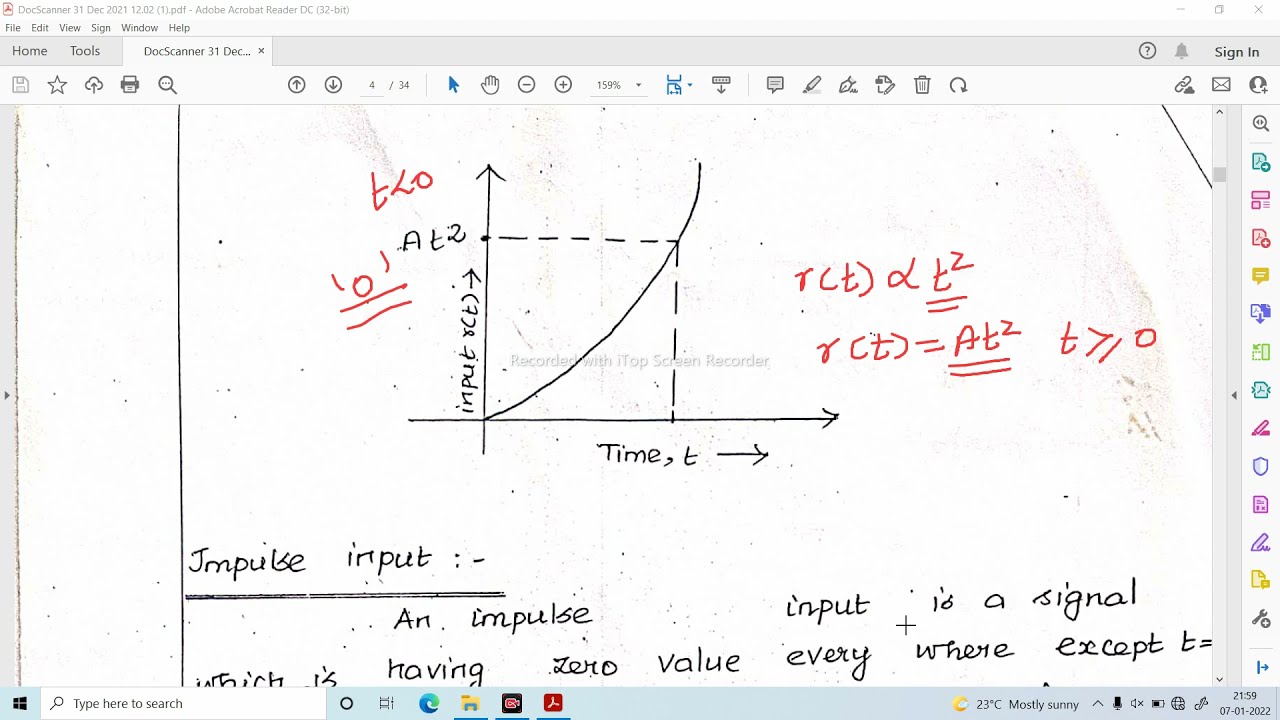 DocScanner 31 Dec 2021 12.02 (1).pdf - Adobe Acrobat Reader DC (32-bit)
File Edit View Sign Window Help
Home Tools DocScanner 31 Dec... × Sign In
4 / 34 159%
t<0
At²
'0'
input r(t) →
r(t) ∝ t²
r(t) = At² t ≥ 0
Recorded with iTop Screen Recorder
Time, t →
Impulse input :-
An impulse input is a signal
which is having zero value every where except t=
Type here to search
23°C Mostly sunny
21:53
07-01-2022